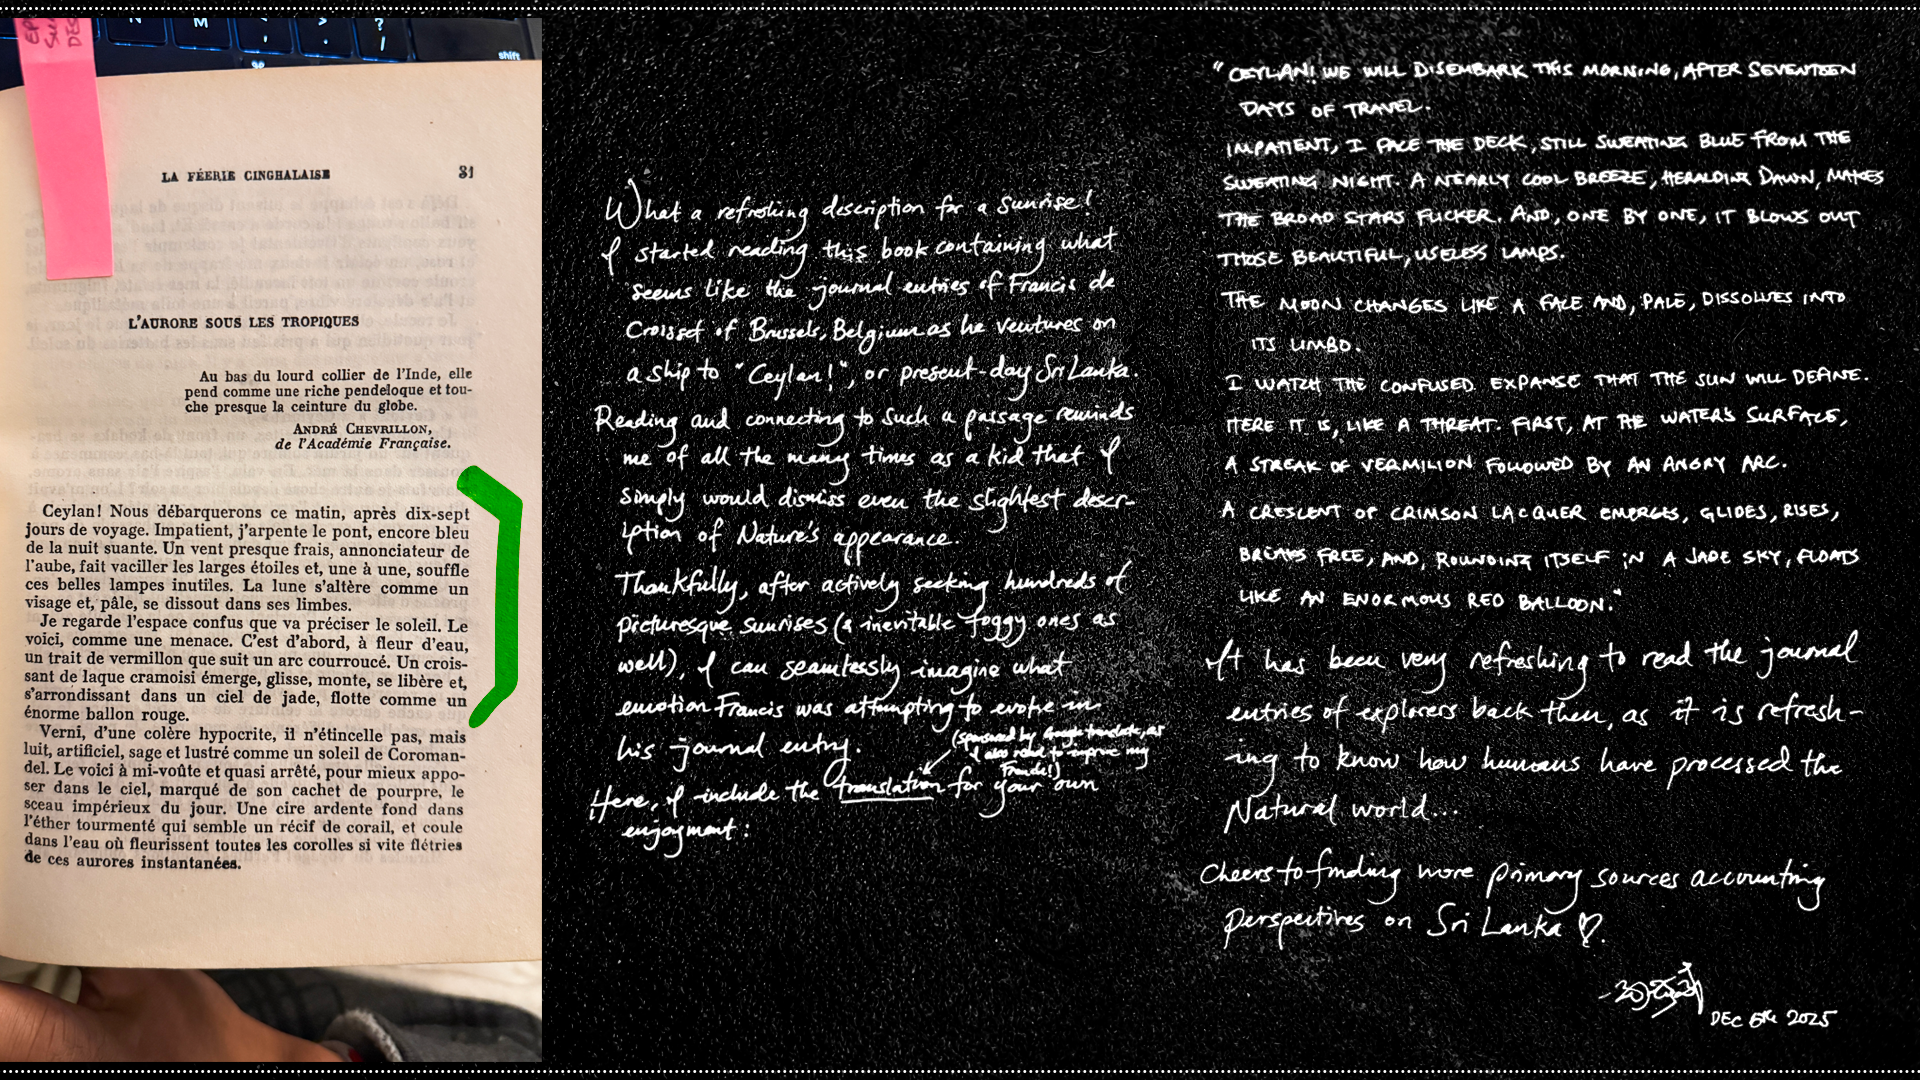 N
M
<
,
>
.
?
/
⌘
shift
EP
SU
DES
LA FÉERIE CINGHALAISE 31
L'AURORE SOUS LES TROPIQUES
Au bas du lourd collier de l'Inde, elle
pend comme une riche pendeloque et tou-
che presque la ceinture du globe.
ANDRÉ CHEVRILLON,
de l'Académie Française.
Ceylan! Nous débarquerons ce matin, après dix-sept
jours de voyage. Impatient, j'arpente le pont, encore bleu
de la nuit suante. Un vent presque frais, annonciateur de
l'aube, fait vaciller les larges étoiles et, une à une, souffle
ces belles lampes inutiles. La lune s'altère comme un
visage et, pâle, se dissout dans ses limbes.
Je regarde l'espace confus que va préciser le soleil. Le
voici, comme une menace. C'est d'abord, à fleur d'eau,
un trait de vermillon que suit un arc courroucé. Un crois-
sant de laque cramoisi émerge, glisse, monte, se libère et,
s'arrondissant dans un ciel de jade, flotte comme un
énorme ballon rouge.
Verni, d'une colère hypocrite, il n'étincelle pas, mais
luit, artificiel, sage et lustré comme un soleil de Coroman-
del. Le voici à mi-voûte et quasi arrêté, pour mieux appo-
ser dans le ciel, marqué de son cachet de pourpre, le
sceau impérieux du jour. Une cire ardente fond dans
l'éther tourmenté qui semble un récif de corail, et coule
dans l'eau où fleurissent toutes les corolles si vite flétries
de ces aurores instantanées.
What a refreshing description for a sunrise!
I started reading this book containing what
seems like the journal entries of Francis de
Croisset of Brussels, Belgium as he ventures on
a ship to "Ceylan!", or present-day Sri Lanka.
Reading and connecting to such a passage reminds
me of all the many times as a kid that I
simply would dismiss even the slightest descr-
iption of Nature's appearance.
Thankfully, after actively seeking hundreds of
picturesque sunrises (& inevitable foggy ones as
well), I can seamlessly imagine what
emotion Francis was attempting to evoke in
his journal entry.
(sponsored by Google translate, as
I also need to improve my
French!)
Here, I include the translation for your own
enjoyment:
"CEYLAN! WE WILL DISEMBARK THIS MORNING, AFTER SEVENTEEN
DAYS OF TRAVEL.
IMPATIENT, I PACE THE DECK, STILL SWEATING BLUE FROM THE
SWEATING NIGHT. A NEARLY COOL BREEZE, HERALDING DAWN, MAKES
THE BROAD STARS FLICKER. AND, ONE BY ONE, IT BLOWS OUT
THOSE BEAUTIFUL, USELESS LAMPS.
THE MOON CHANGES LIKE A FACE AND, PALE, DISSOLVES INTO
ITS LIMBO.
I WATCH THE CONFUSED EXPANSE THAT THE SUN WILL DEFINE.
HERE IT IS, LIKE A THREAT. FIRST, AT THE WATER'S SURFACE,
A STREAK OF VERMILION FOLLOWED BY AN ANGRY ARC.
A CRESCENT OF CRIMSON LACQUER EMERGES, GLIDES, RISES,
BREAKS FREE, AND, ROUNDING ITSELF IN A JADE SKY, FLOATS
LIKE AN ENORMOUS RED BALLOON."
It has been very refreshing to read the journal
entries of explorers back then, as it is refresh-
ing to know how humans have processed the
Natural world...
Cheers to finding more primary sources accounting
perspectives on Sri Lanka ♡.
DEC 6th 2025